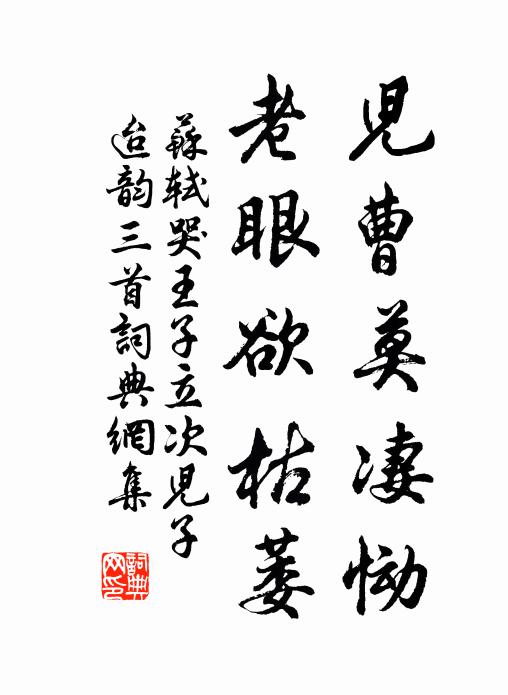 兒曹莫淒慟
老眼欲枯萎
蘇軾哭王子立次兒子
迨韵三首詞典網集
詞典
网印